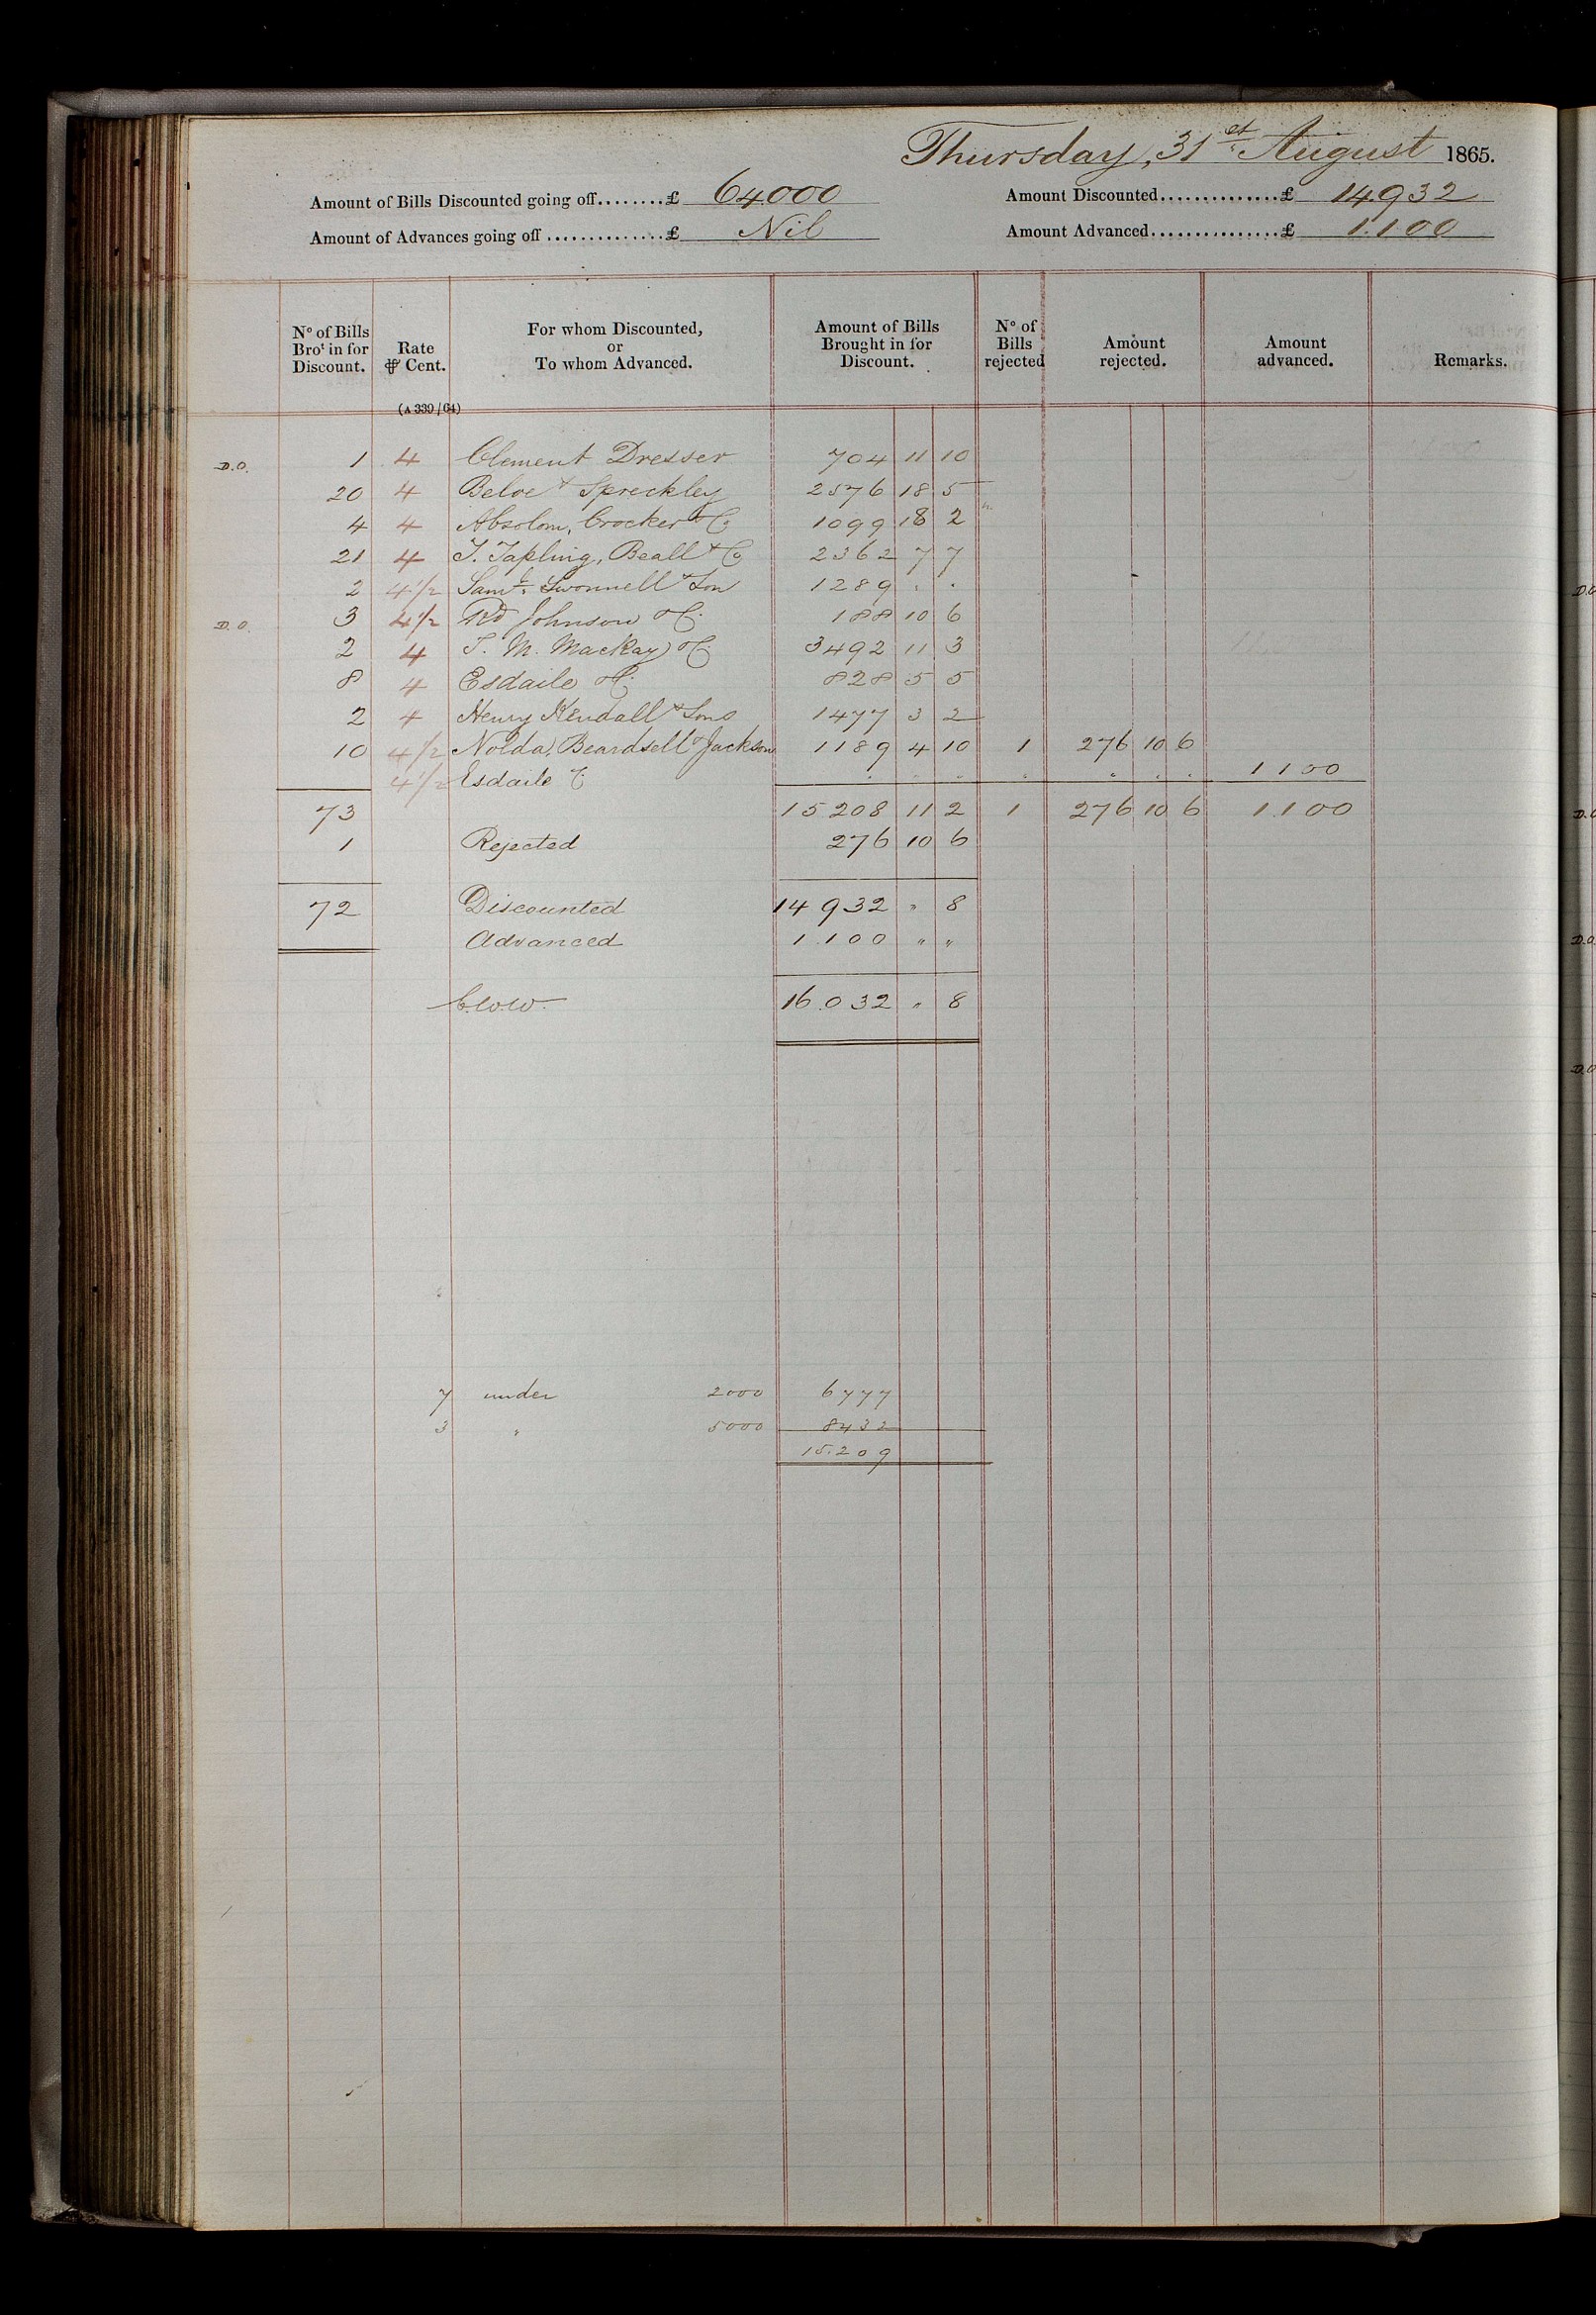 Thursday, 31st August 1865.
Amount of Bills Discounted going off........£ 64000 Amount Discounted..............£ 14932
Amount of Advances going off...............£ Nil Amount Advanced...............£ 1.100
No of Bills Brot in for Discount. Rate ⅌ Cent. For whom Discounted, or To whom Advanced. Amount of Bills Brought in for Discount. No of Bills rejected Amount rejected. Amount advanced. Remarks.
(A 339/64)
D.O. 1 4 Clement Dresser 704 11 10
20 4 Beloe & Spreckley 2576 18 5
4 4 Absolom, Crocker & Co 1099 18 2
21 4 T. Tapling, Beall & Co 2362 7 7
2 4½ Saml. Swonnell & Son 1289 " "
D.O. 3 4½ Rd Johnson & Co. 188 10 6
2 4 T. M. Mackay & Co. 3492 11 3
8 4 Esdaile & Co. 828 5 5
2 4 Henry Kendall & Sons 1477 3 2
10 4½ Nolda, Beardsell & Jackson 1189 4 10 1 276 10 6
4½ Esdaile & Co " " " " " " " 1100
73 15208 11 2 1 276 10 6 1.100
1 Rejected 276 10 6
72 Discounted 14932 " 8
Advanced 1.100 " "
16.032 " 8
7 under 2000 6777
3 " 5000 8432
15.209